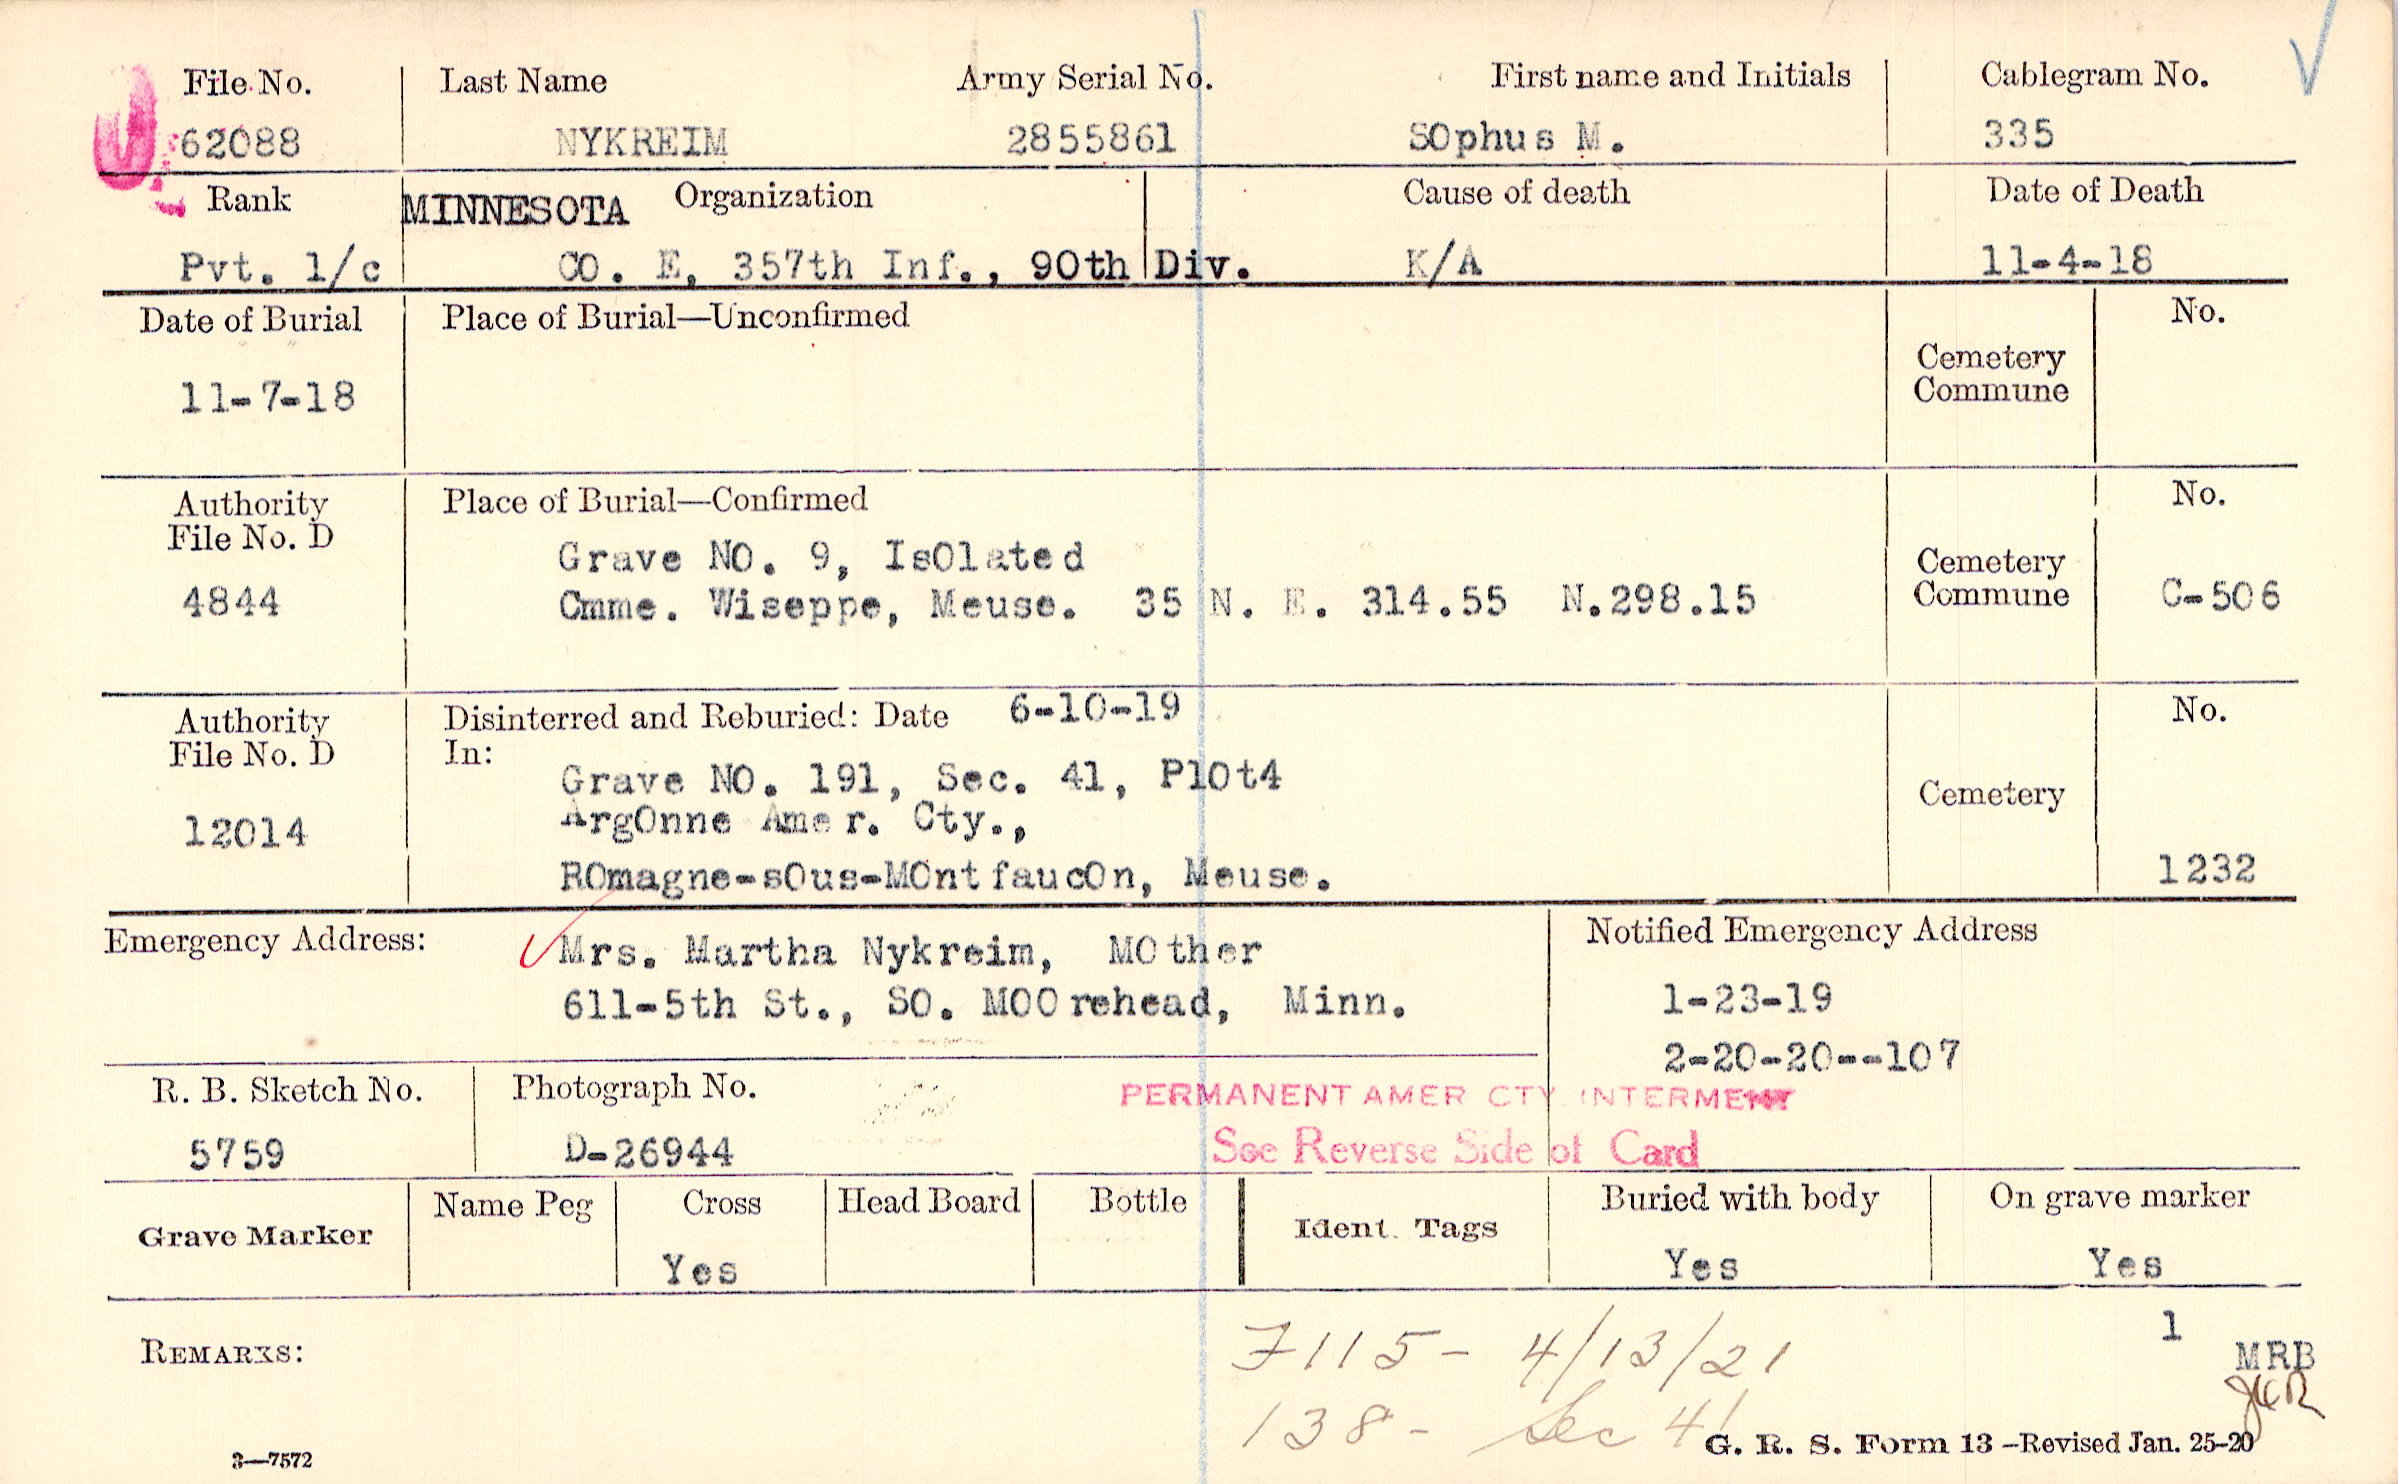 File No. Last Name Army Serial No. First name and Initials Cablegram No.
62088 NYKREIM 2855861 SOphus M. 335
Rank MINNESOTA Organization Cause of death Date of Death
Pvt. 1/c CO. E, 357th Inf., 90th Div. K/A 11-4-18
Date of Burial Place of Burial—Unconfirmed No.
Cemetery
Commune
11-7-18
Authority Place of Burial—Confirmed No.
File No. D
Grave NO. 9, IsOlated Cemetery
4844 Cmme. Wiseppe, Meuse. 35 N. E. 314.55 N.298.15 Commune C-506
Authority Disinterred and Reburied: Date 6-10-19 No.
File No. D In:
Grave NO. 191, Sec. 41, PlOt4 Cemetery
12014 ArgOnne Amer. Cty.,
ROmagne-sOus-MOntfaucOn, Meuse. 1232
Emergency Address: Mrs. Martha Nykreim, MOther Notified Emergency Address
611-5th St., SO. MOOrehead, Minn. 1-23-19
2-20-20--107
R. B. Sketch No. Photograph No. PERMANENT AMER CTY INTERMENT
5759 D-26944 See Reverse Side of Card
Grave Marker Name Peg Cross Head Board Bottle Ident. Tags Buried with body On grave marker
Yes Yes Yes
1
REMARKS: 7115- 4/13/21 MRB
138- Sec 41
3—7572 G. R. S. Form 13—Revised Jan. 25-20